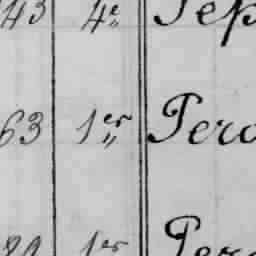 43 4e Pep
63 1er Pero
1er Pero